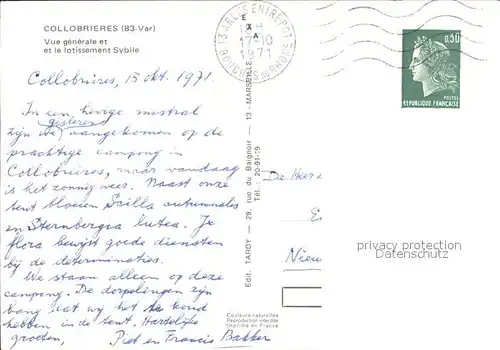 COLLOBRIERES (83-Var)
Vue générale et
et le lotissement Sybile
Collobrières, 15 okt. 1971.
In een hevige mistral
gisteren
zijn we aangekomen op de
prachtige camping in
Collobrières, maar vandaag
is het zonnig weer. Naast onze
tent bloeien Scilla autumnales
en Sternbergia lutea. Je
flora bewijst goede diensten
bij de determinaties.
We staan alleen op deze
camping. De dorpelingen zijn
bang dat wij het te koud
hebben in de tent. Hartelijke
groeten, Piet en Francis Bakker
Edit. TARDY - 29, rue du Baignoir - 13 - MARSEILLE
Tél. : 20-91-19
13 ARLES ENTREPOT
1971
BOUCHES DU RHONE
E
X
A
0,30
POSTES
REPUBLIQUE FRANÇAISE
De Heer e
Nieuw
privacy protection
Datenschutz
Couleurs naturelles
Reproduction interdite
Imprimé en France